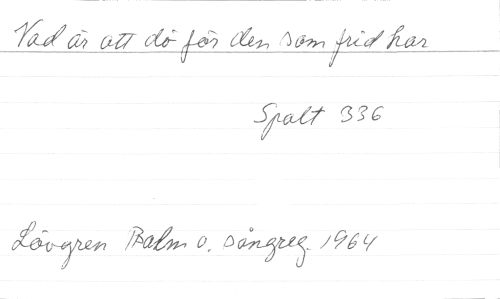 Vad är att dö för den som frid har
Spalt 336
Lövgren Psalm o. sångreg. 1964